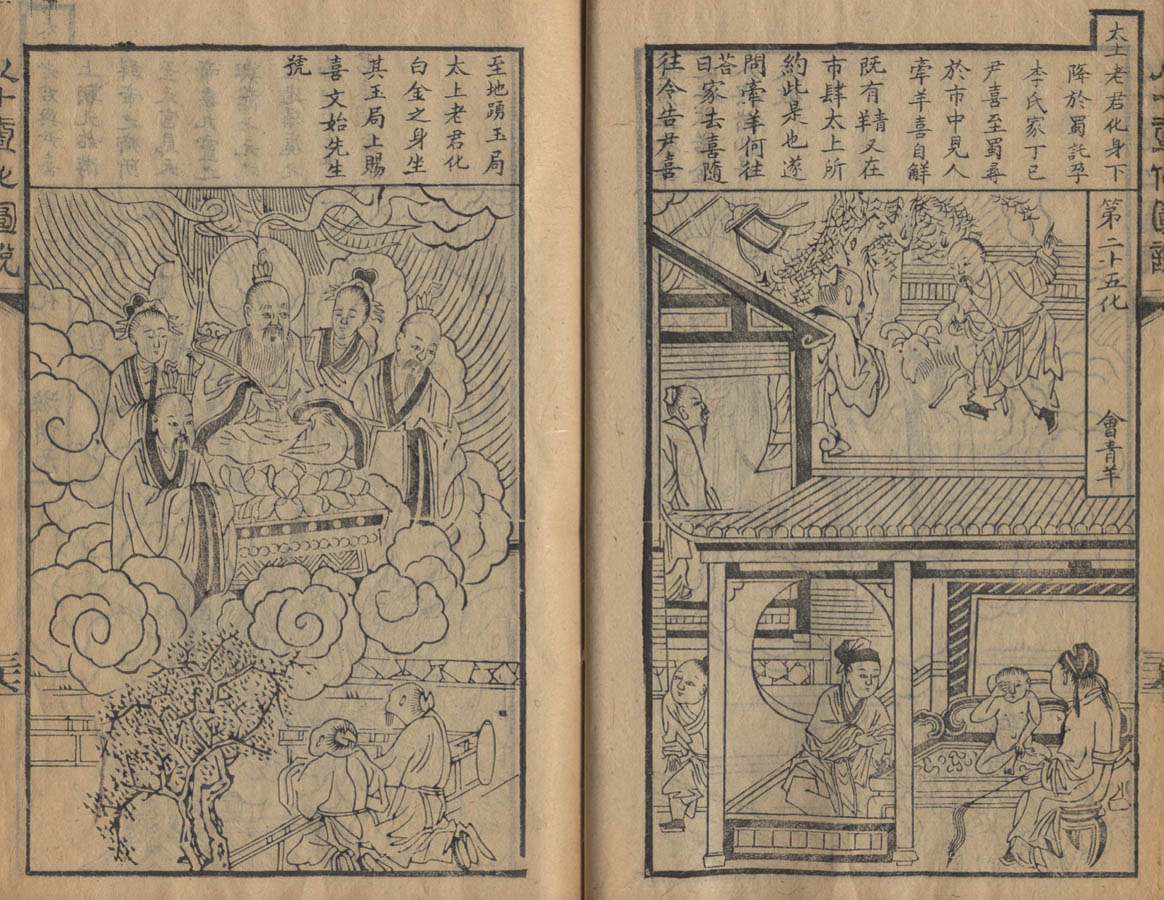 太上老君化身下
降於蜀託孕
李氏家丁巳
尹喜至蜀尋
於市中見人
牽羊喜自解
既有羊又在
市肆太上所
約此是也遂
問牽羊何往
荅
曰家去喜隨
往令告尹喜
第二十五化
會青羊
至地踴玉局
太上老君化
白金之身坐
其玉局上賜
喜文始先生
號
八十壹化圖說